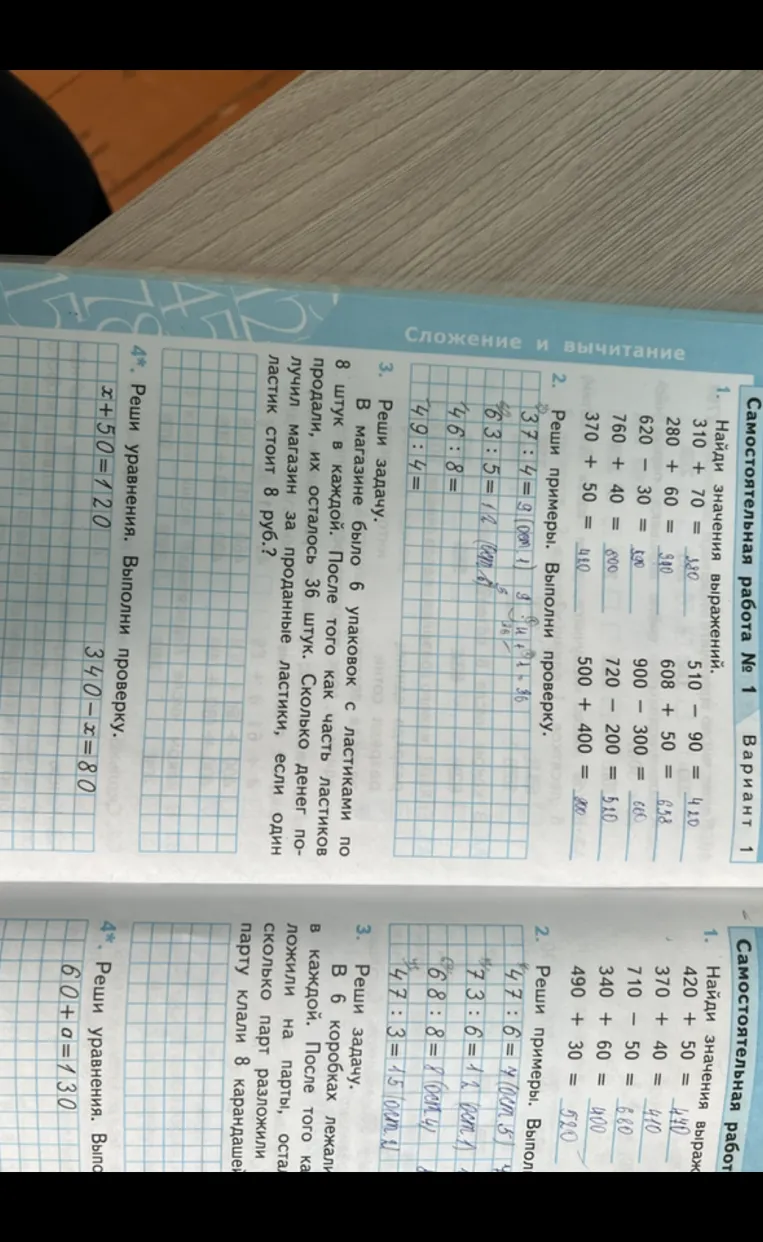 Сложение и вычитание
Самостоятельная работа № 1 Вариант 1
1. Найди значения выражений.
310 + 70 = 380 510 − 90 = 420
280 + 60 = 340 608 + 50 = 658
620 − 30 = 590 900 − 300 = 600
760 + 40 = 800 720 − 200 = 520
370 + 50 = 420 500 + 400 = 900
2. Реши примеры. Выполни проверку.
37 : 4 = 9 (ост 1)
63 : 5 = 12
46 : 8 =
49 : 4 =
3. Реши задачу.
В магазине было 6 упаковок с ластиками по
8 штук в каждой. После того как часть ластиков
продали, их осталось 36 штук. Сколько денег по-
лучил магазин за проданные ластики, если один
ластик стоит 8 руб.?
4*. Реши уравнения. Выполни проверку.
x + 50 = 120 340 − x = 80
Самостоятельная работ
1. Найди значения выраж
420 + 50 =
370 + 40 = 410
710 − 50 = 660
340 + 60 = 400
490 + 30 = 520
2. Реши примеры. Выпол
47 : 6 = 7 (ост 5)
73 : 6 = 12 (ост 1)
68 : 8 = 8 (ост 4)
47 : 3 = 15 (ост 2)
3. Реши задачу.
В 6 коробках лежали
в каждой. После того ка
ложили на парты, оста
сколько парт разложили
парту клали 8 карандашей
4*. Реши уравнения. Выпо
60 + a = 130